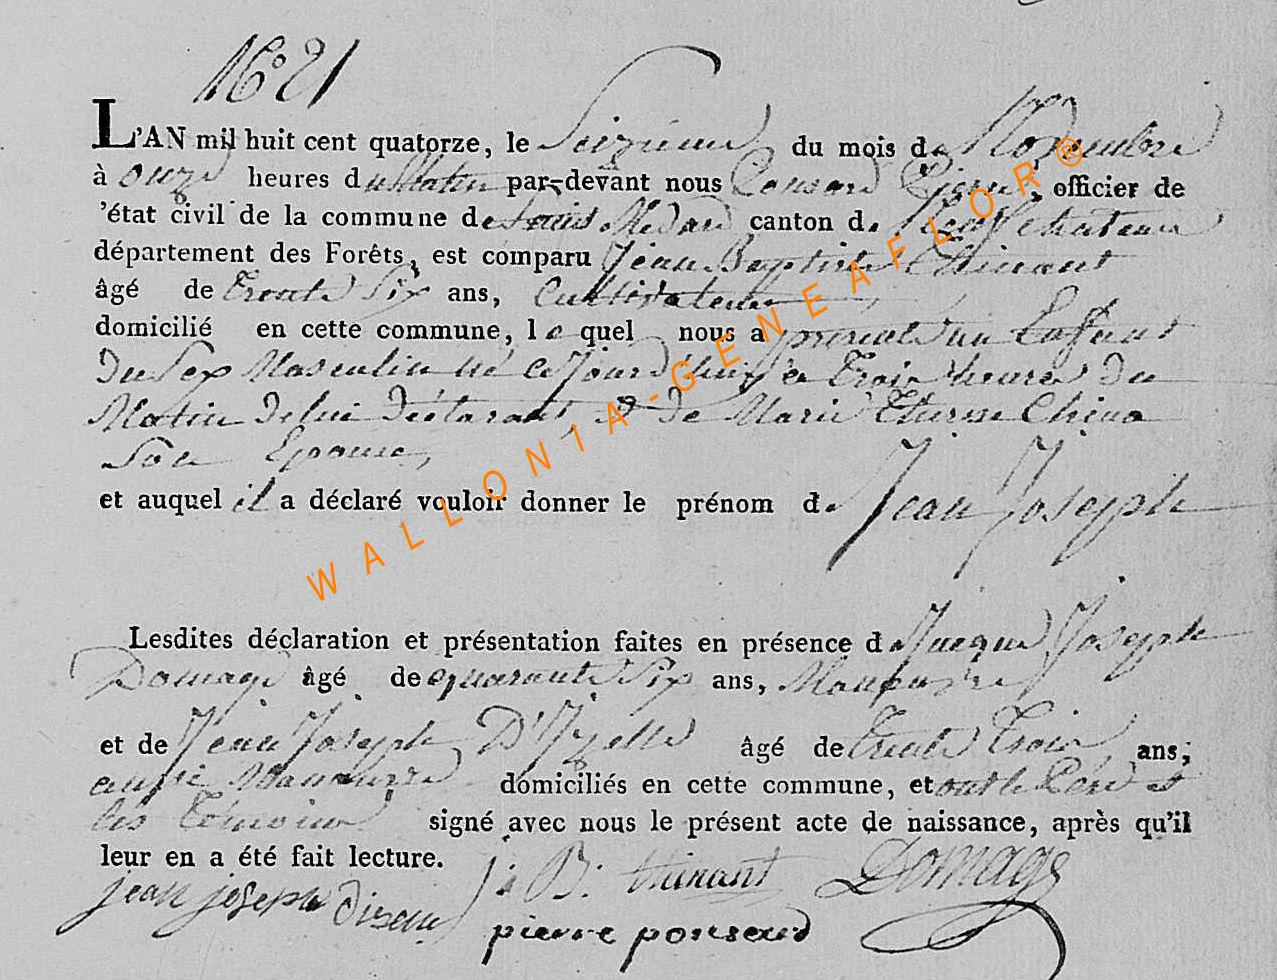 N° 21
L'AN mil huit cent quatorze, le Seizieme du mois de Novembre
à onze heures du Matin par-devant nous Ponsard Pierre, officier de
'état civil de la commune de Saint Medard canton de Neufchateau
département des Forêts, est comparu Jean Baptiste Thinant
âgé de Trente Six ans, Cultivateur
domicilié en cette commune, lequel nous a presenté un Enfant
Du Sex Masculin né ce Jourd'huij a Trois heures Du
Matin De lui Déclarant, & De Marie Therese China
Son Epouse,
et auquel il a déclaré vouloir donner le prénom de Jean Joseph
Lesdites déclaration et présentation faites en présence de Jacque Joseph
Domage âgé de quarante Six ans,
et de Jean Joseph D'Izelle âgé de Trente Trois ans;
aussi domiciliés en cette commune, et ont le Pere et
les Temoins signé avec nous le présent acte de naissance, après qu'il
leur en a été fait lecture.
j: B: thinant Domage
jean joseph
pierre ponsard
WALLONIA-GENEAFLOR®